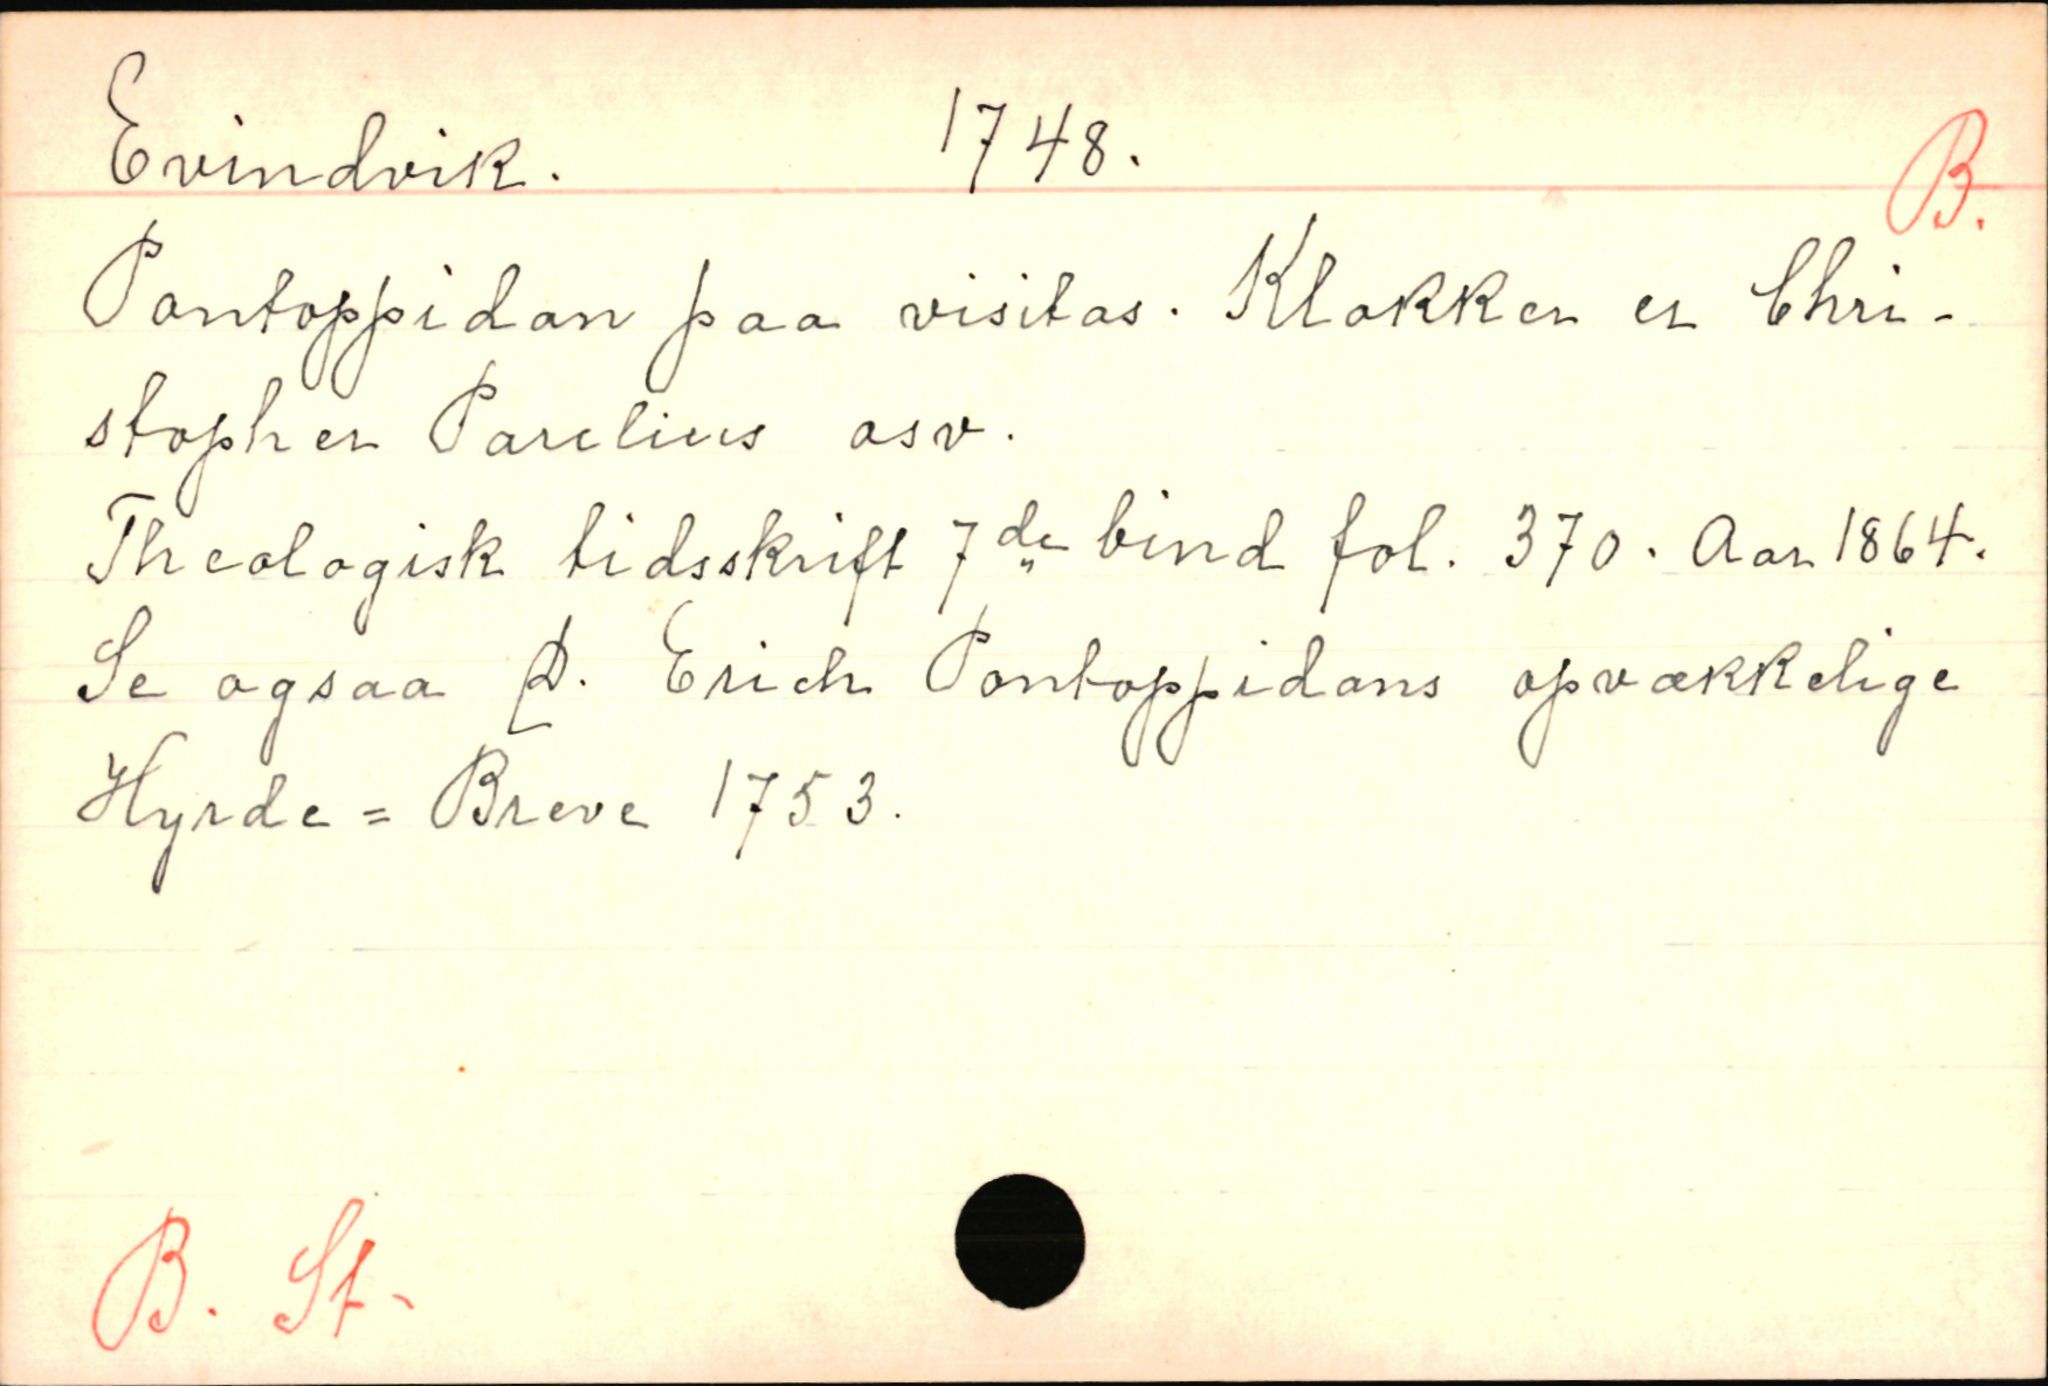 Evindvik. 1748.
B.
Pontoppidan paa visitas. Klokker er Chri-
stopher Parelius osv.
Theologisk tidsskrift 7de bind fol. 370. Aar 1864.
Se ogsaa D. Erich Pontoppidans opvækkelige
Hyrde = Breve 1753.
B. St.